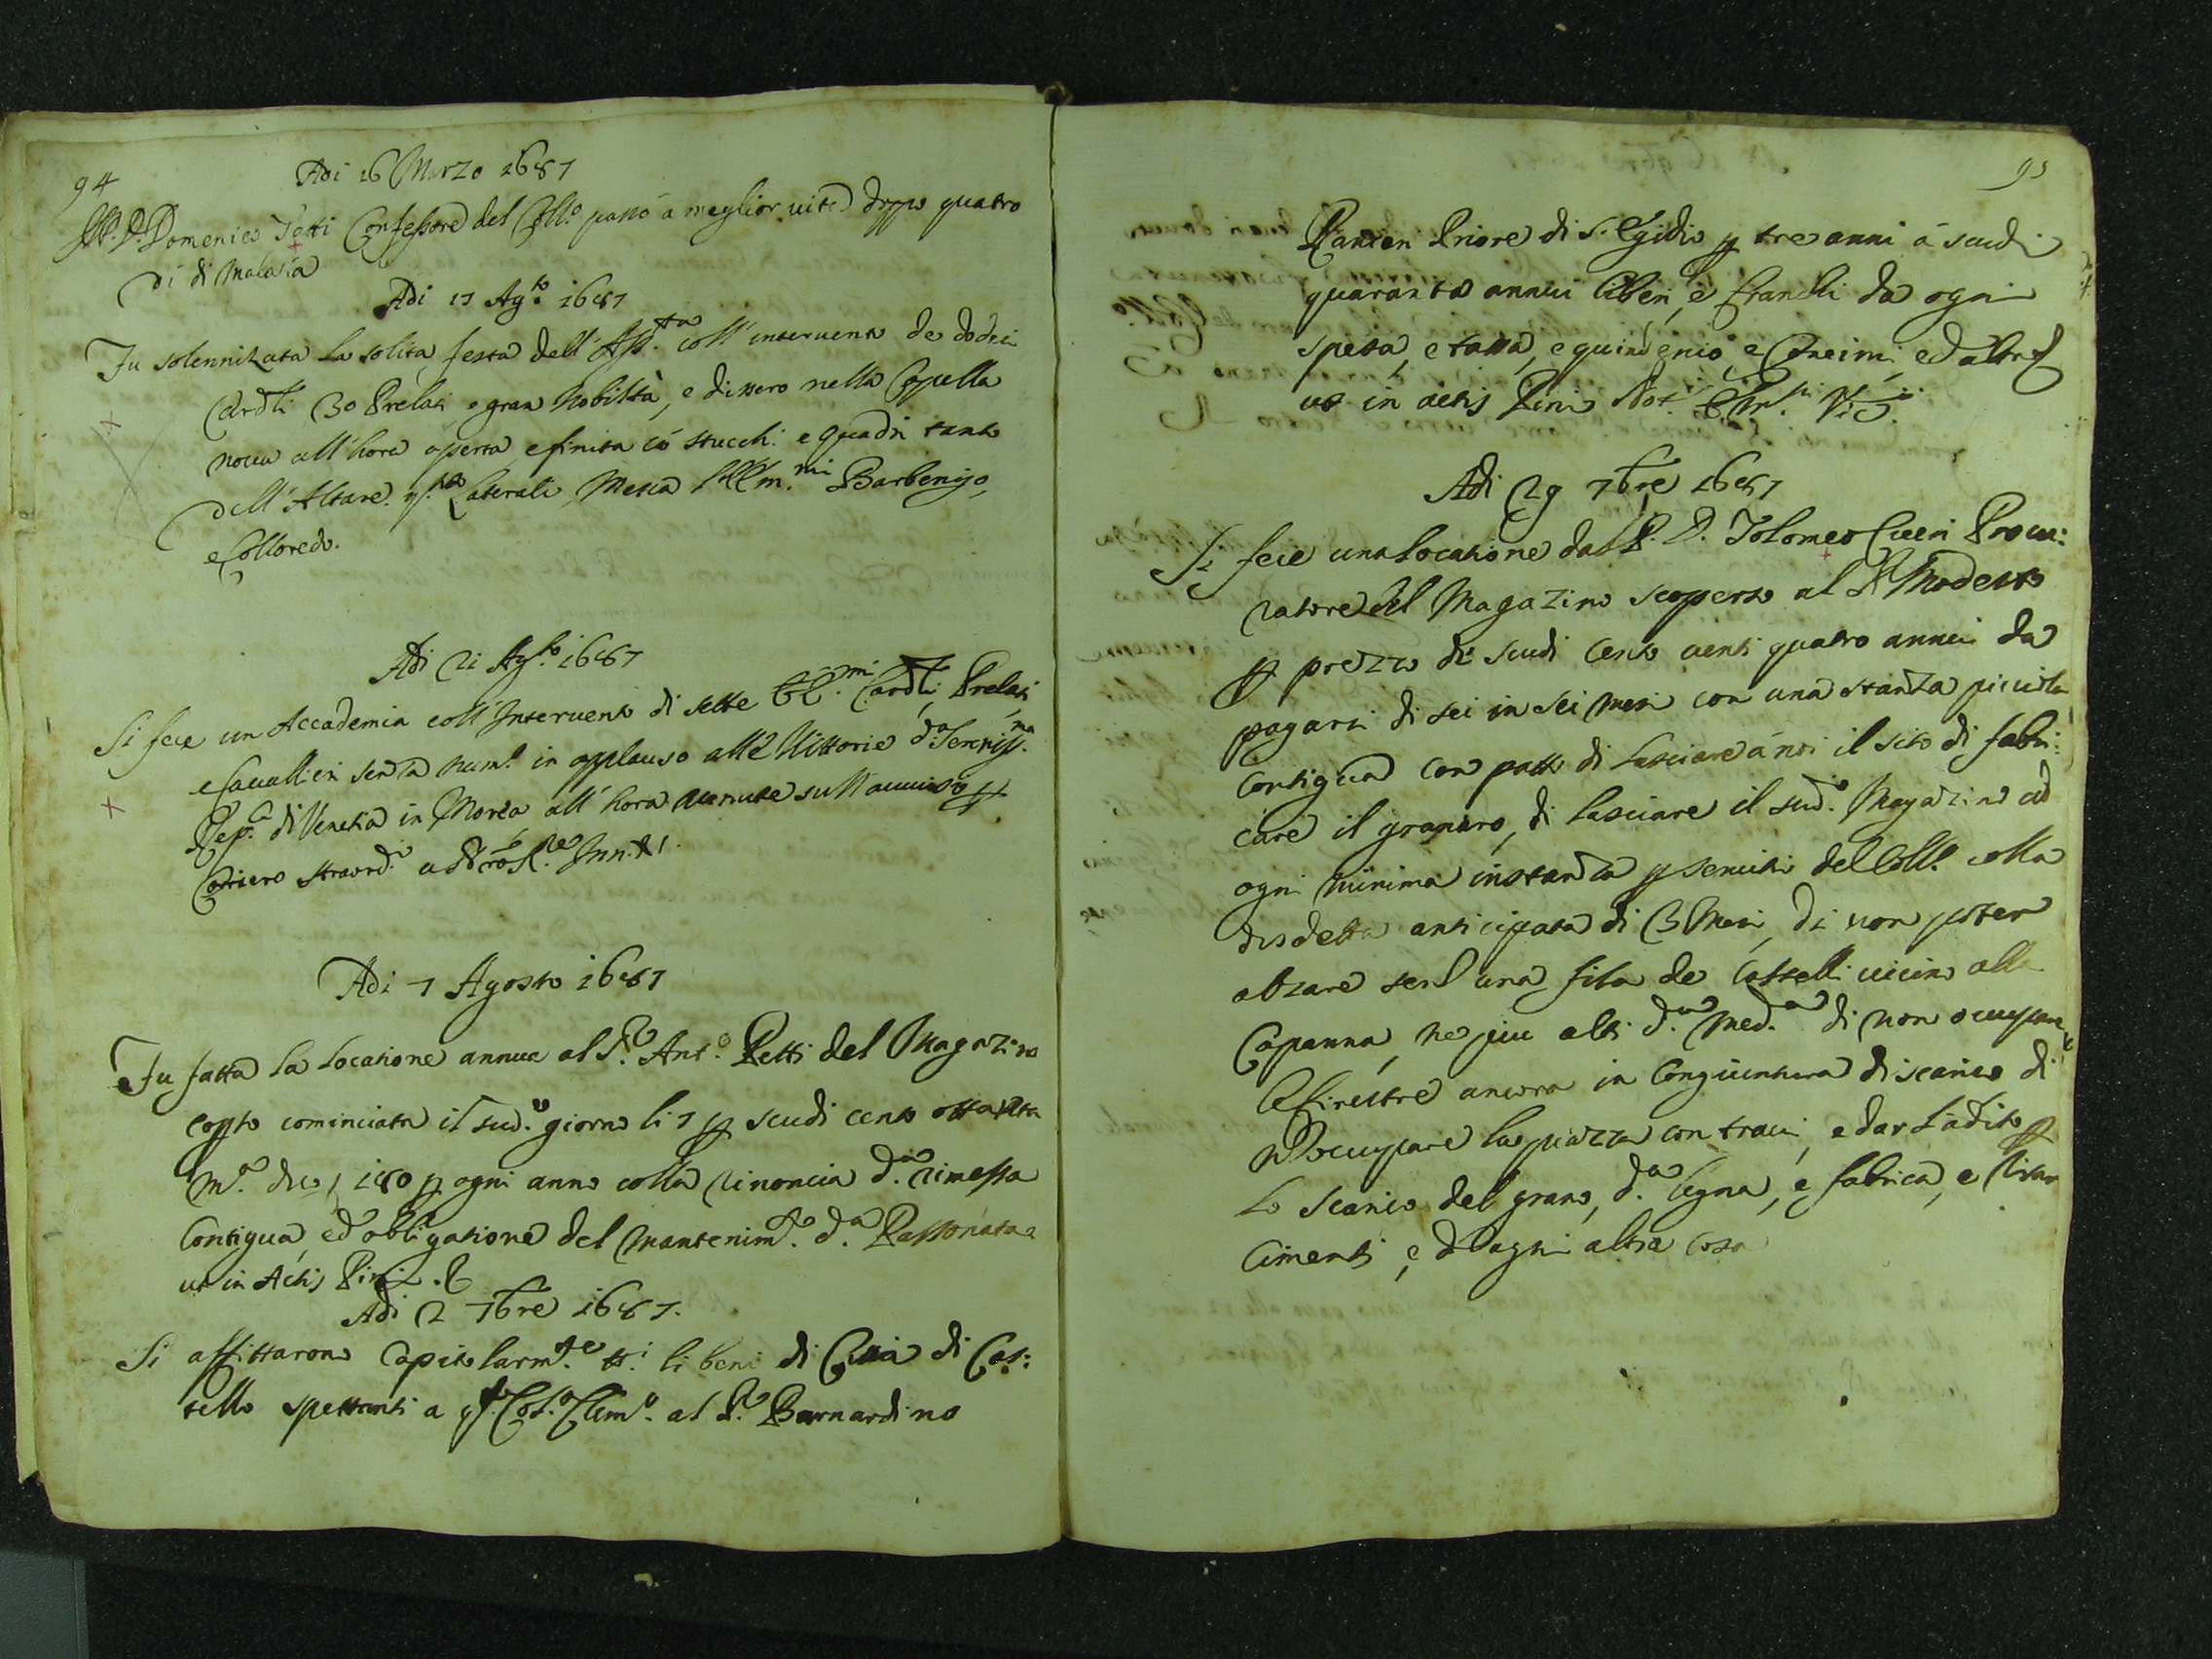 94
Adi 16 Marzo 1687
Il P. D. Domenico Totti Confessore del Coll.o passò a meglior vita doppo quatro
dì di malatia
Adi 17 Ag.to 1687
Fu solennizata la solita festa dell' Ass.ta coll' intervento de dodici
Cardli 30 Prelati e gran Nobiltà, e di vero nella Capella
nova all' hora aperta e finita cō stucchi e quadri tanto
dell' Altare. Laterali Messa Emm.mi Barberigo,
e Colloredo.
Adi 21 Ag.to 1687
Si fece un Accademia coll' Intervento di sette Card.li, Prelati
e Cavallieri senza num.o in applauso alle Vittorie d.a Sereniss.ma
Rep.ca di Venetia in Morea all' hora avenute sull' avviso p
Coriero straord.o a Inn. XI.
Adi 7 Agosto 1687
Fu fatta la locatione annua al S.r Ant.o Petti del Magazino
copto cominciata il sud.o giorno li 7 p scudi cento ottanta
m.ta dico 180 p ogni anno colla rinoncia d.a rimessa
Contigua, ed obligatione del mantenim.to d.a Passonata
ut in Actis Pini
Adi 2 7bre 1687.
Si affittarono Capitolarm.te tt.i li beni di Città di Cas:
tello spettanti a Col.o Clem.o al S.r Barnardino
95
Priore di S. Egidio p tre anni à scudi
quaranta annui liberi, e franchi da ogni
spesa, e tassa, e quindenio, e Concimi, ed altro
ut in actis Pini Not. Vic.
Adi 29 7bre 1687
Si fece una locatione dal P. D. Tolomeo Procu:
ratore del Magazino scoperto al S.r Modesto
p prezzo di scudi cento venti quatro annui da
pagarsi di sei in sei mesi con una stanza piciola
Contigua con patto di lasciare à noi il sito di fabri:
care il granaro, di lasciare il sud.o Magazino ad
ogni minima instanza p servitio del Coll.o colla
disdetta anticipata di 3 Mesi, di non poter
alzare se nō una fila de Castelli vicino alla
Capanna, ne piu alti d.a med.a di non occupare
le finestre ancora in Congiuntura di scarico di
occupare la piazza con travi, e dar l'adito p
lo scarico del grano, d.a legna, e fabrica, e
cimenti, e d'ogni altra cosa